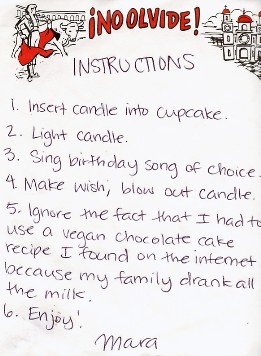 ¡NO OLVIDE!
INSTRUCTIONS
1. Insert candle into cupcake.
2. Light candle.
3. Sing birthday song of choice.
4. Make wish; blow out candle.
5. Ignore the fact that I had to
use a vegan chocolate cake
recipe I found on the internet
because my family drank all
the milk.
6. Enjoy!
Mara